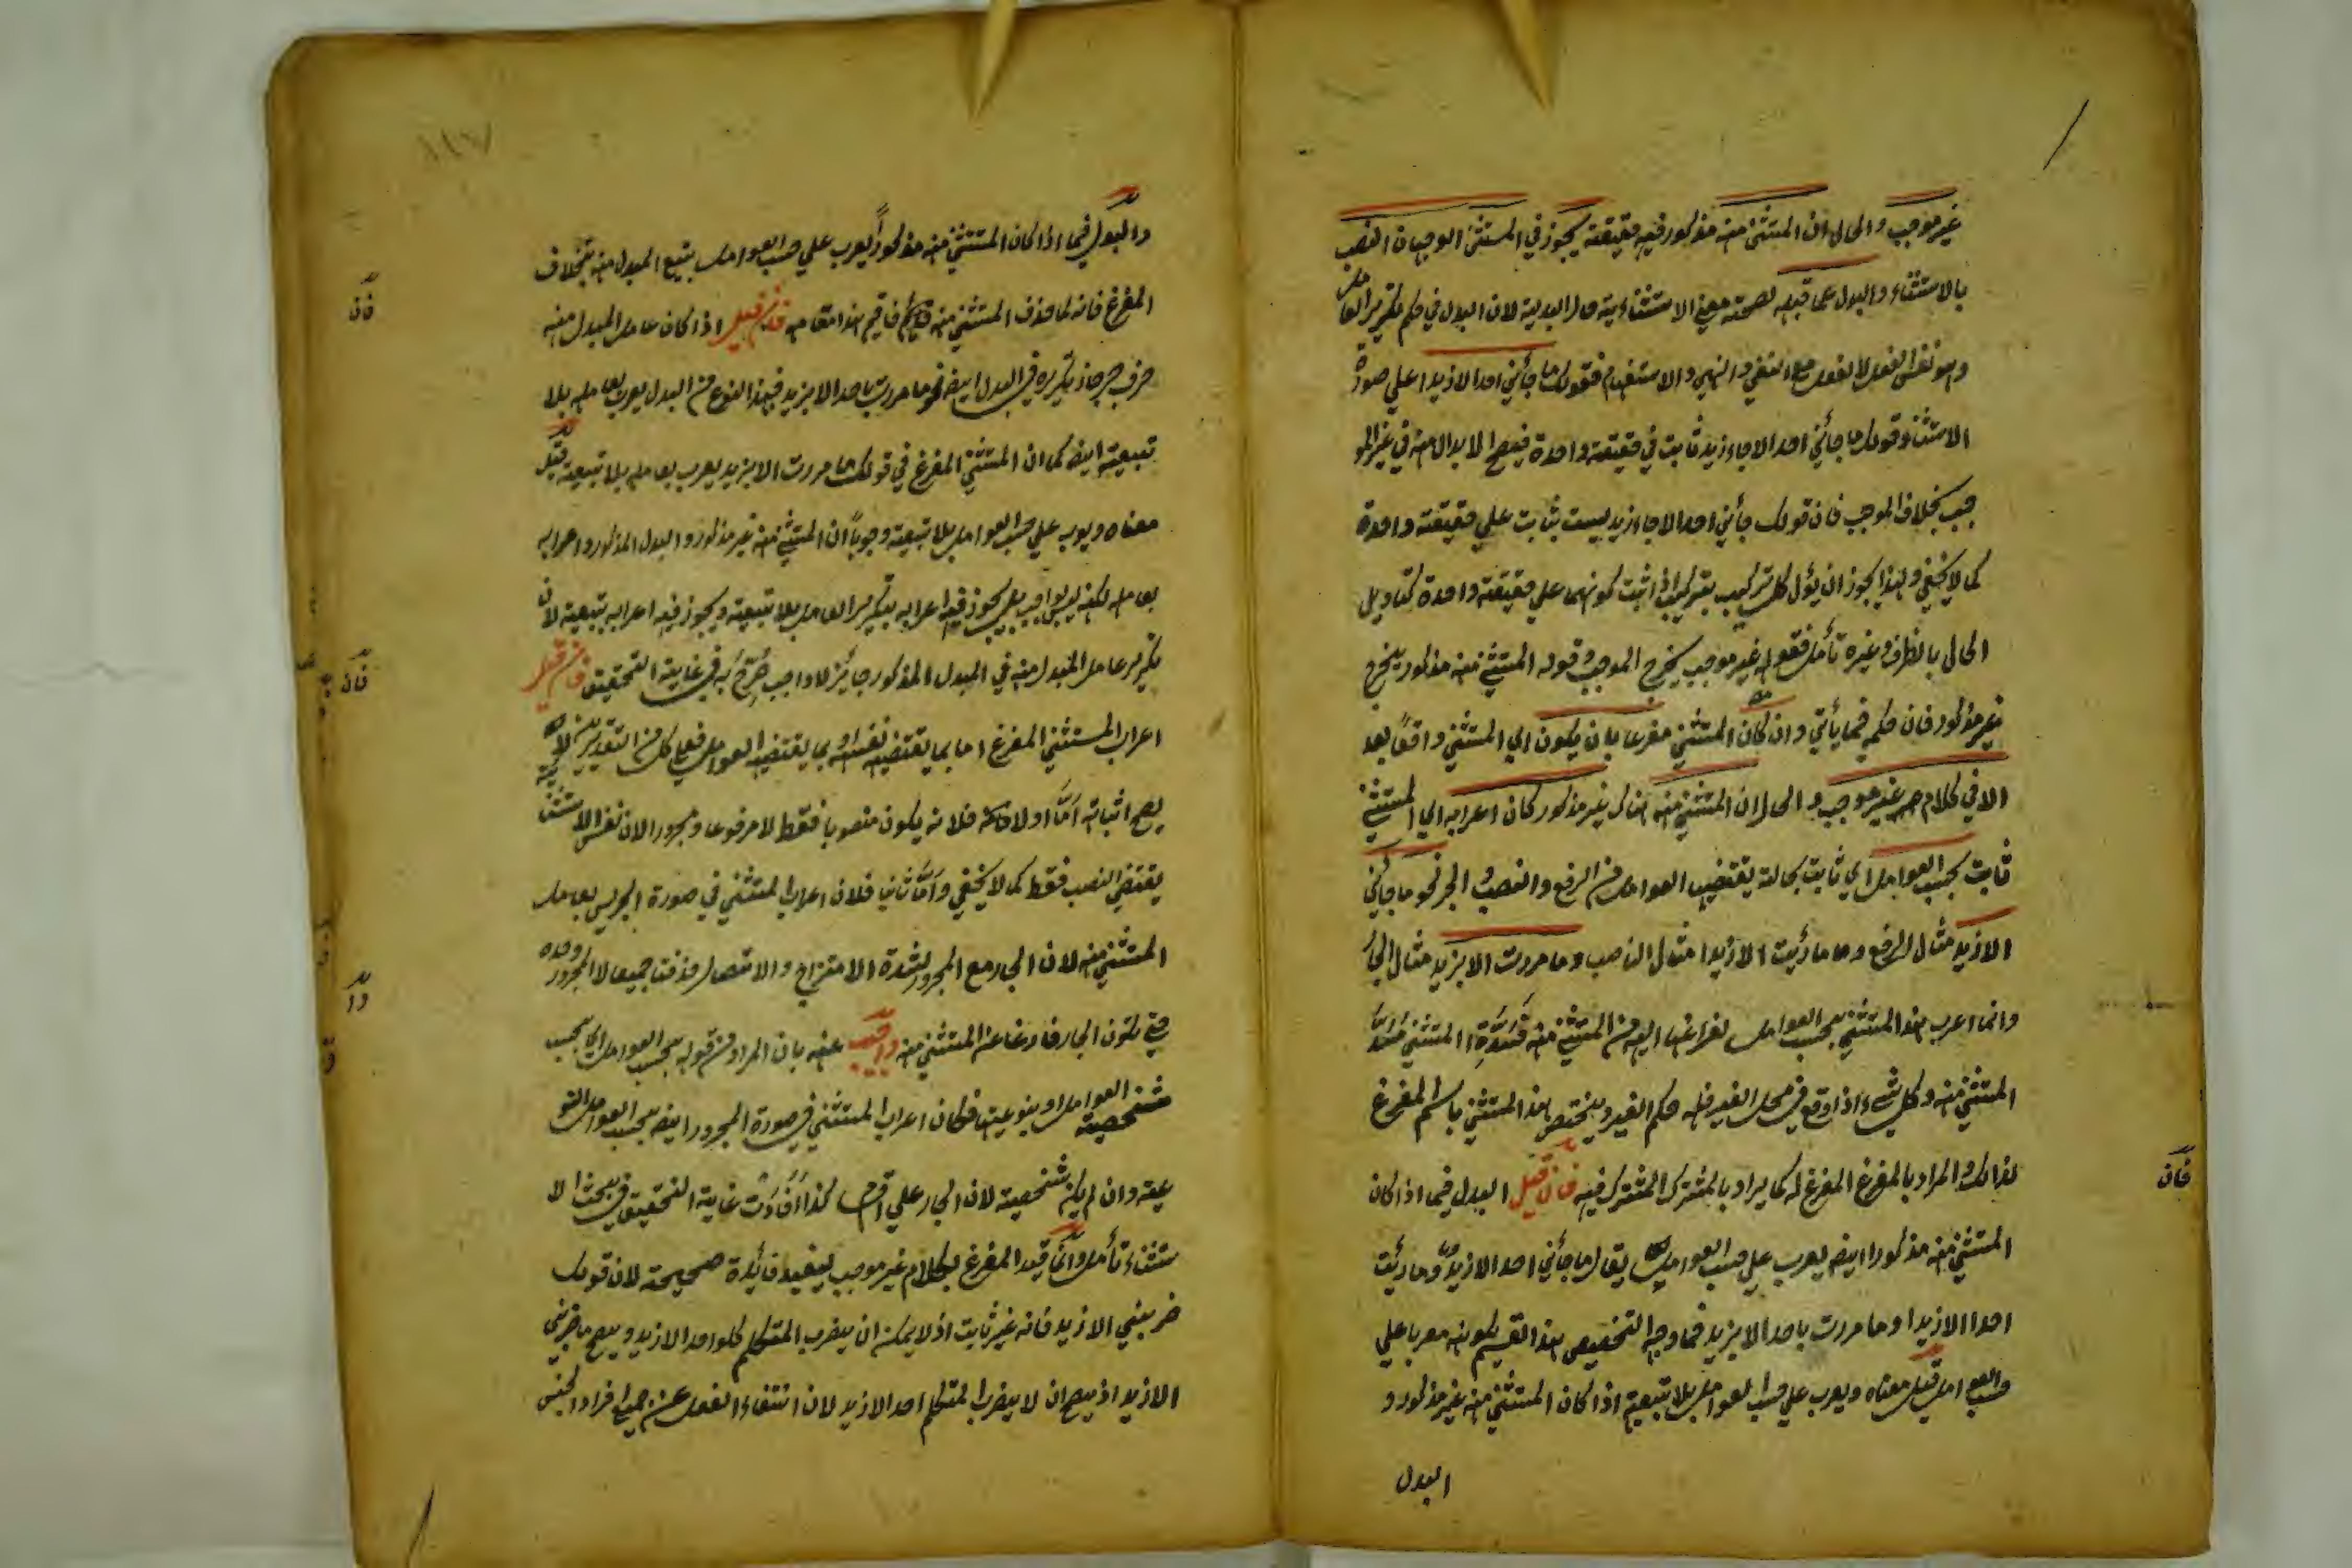 غير موجب والحال ان المستثنى منه مذكور فيه حقيقة يجوز في المستثنى الوجهان النصب
بالاستثناء والبدل عما قبله لصحة معنى الاستثنائية والبدلية لان البدل في حكم تكرير العامل
وهو نفس الفعل لا لفعل مع النفي والنهي والاستفهام فقولك ما جائني احد الا زيدا علي صورة
الاستثناء وقولك ما جائني احد الا جاء زيد ثابت في حقيقة واحدة فيصح الابدال منه في غير المو
جب بخلاف الموجب فان قولك جائني احد الا جاء زيد ليست ثبابت علي حقيقة واحدة
كما لا يخفي ولهذا يجوز ان يؤل كل تركيب بتركيب اذا ثبت كونهما علي حقيقة واحدة كتاويل
الحال بالظرف وغيره تأمل فقوله غير موجب يخرج الموجب وقوله المستثنى منه مذكور يخرج
غير مذكور فان حكمه فيما يأتي وان كان المستثني مفرغا بان يكون اي المستثني واقعا بعد
الا في كلام غير موجب والحال ان المستثنى منه هناك غير مذكور كان اعرابه اي المستثني
ثابت بحسب العوامل اي ثابت بحالة يقتضيها العوامل من الرفع والنصب والجر نحو ما جائني
الا زيد مثال الرفع وما رأيت الا زيدا مثال الناصب وما مررت الا بزيد مثال الجار
وانما اعرب هذا المستثنى بحسب العوامل لفراغها اليه من المستثنى منه المستثنى مسد
المستثنى منه وكل شيء اذا وقع في محل الغير فله حكم الغير ويختص هذا المستثنى باسم المفرغ
لذالك والمراد بالمفرغ المفرغ له كما يراد بالمشترك المشترك فيه فان قيل البدل فيما اذا كان
المستثنى منه مذكورا ايضا يعرب علي حسب العوامل يقال ما جائني احد الا زيد وما رأيت
احدا الا زيدا وما مررت باحد الا بزيد فما وجه التخصيص هذا القسم بكونه معربا علي
حسب العوامل قيل معناه ويعرب علي حسب العوامل بلا تبعية اذا كان المستثنى منه غير مذكور و
البدل
والبدل فيما اذا كان المستثنى منه مذكورا يعرب علي حسب العوامل بتبع المبدل منه بخلاف
المفرغ فانه لما حذف المستثنى منه فاقيم هذا مقامه فان قيل اذا كان عامل المبدل منه
حرف جر جاز تكريره في البدل ايضا نحو ما مررت باحد الا بزيد فهذا النوع من البدل يعرب بعامله بلا
تبعية ايضا كما ان المستثنى المفرغ في قولك ما مررت الا بزيد يعرب بعامله بلا تبعية قيل
معناه ويعرب علي حسب العوامل بلا تبعية وجوبا ان المستثنى منه غير مذكور والبدل المذكور واعرابه
بعامله لكنه ليس بواجب بل يجوز فيه اعرابه بتكرير العامل بلا تبعية ويجوز فيه اعرابه بتبعية لان
تكرير عامل المبدل منه في المبدل المذكور جائز لا واجب صرح به في غاية التحقيق فان قيل
اعراب المستثنى المفرغ اما بما يقتضيه نفسه او بما يقتضيه العوامل فعلي كل من التقديرين لا
يصح اثباته اما اولا فلانه يكون منصوبا فقط لا مرفوعا ومجرورا لان نفس الاستثناء
يقتضي النصب فقط كما لا يخفي واما ثانيا فلان اعراب المستثني في صورة الجر ليس بعامل
المستثنى منه لان الجار مع المجرور لشدة الامتزاج والاتصال حذفتا جميعا لا المجرور وحده
حتى تكون الجار فارغا عن المستثنى منه واجيب عنه بان المراد من قوله بحسب العوامل اي بحسب
شخصية العوامل او بنوعيتها فكان اعراب المستثني في صورة المجرور ايضا بحسب العوامل النو
عية وان لم يكن شخصية لان الجار علي اقسام كذا افادت غاية التحقيق في بحث الا
ستثناء تأمل وانما قيد المفرغ بكلام غير موجب ليفيد فائدة صحيحة لان قولك
ضربني الا زيد فانه غير ثابت اذ لا يمكن ان يضرب المتكلم كل واحد الا زيد ويصح ما ضربني
الا زيد اذ يصح ان لا يضرب المتكلم احد الا زيد لان انتفاء الفعل عن جميع افراد الجنس
فان
فان
وا
فان